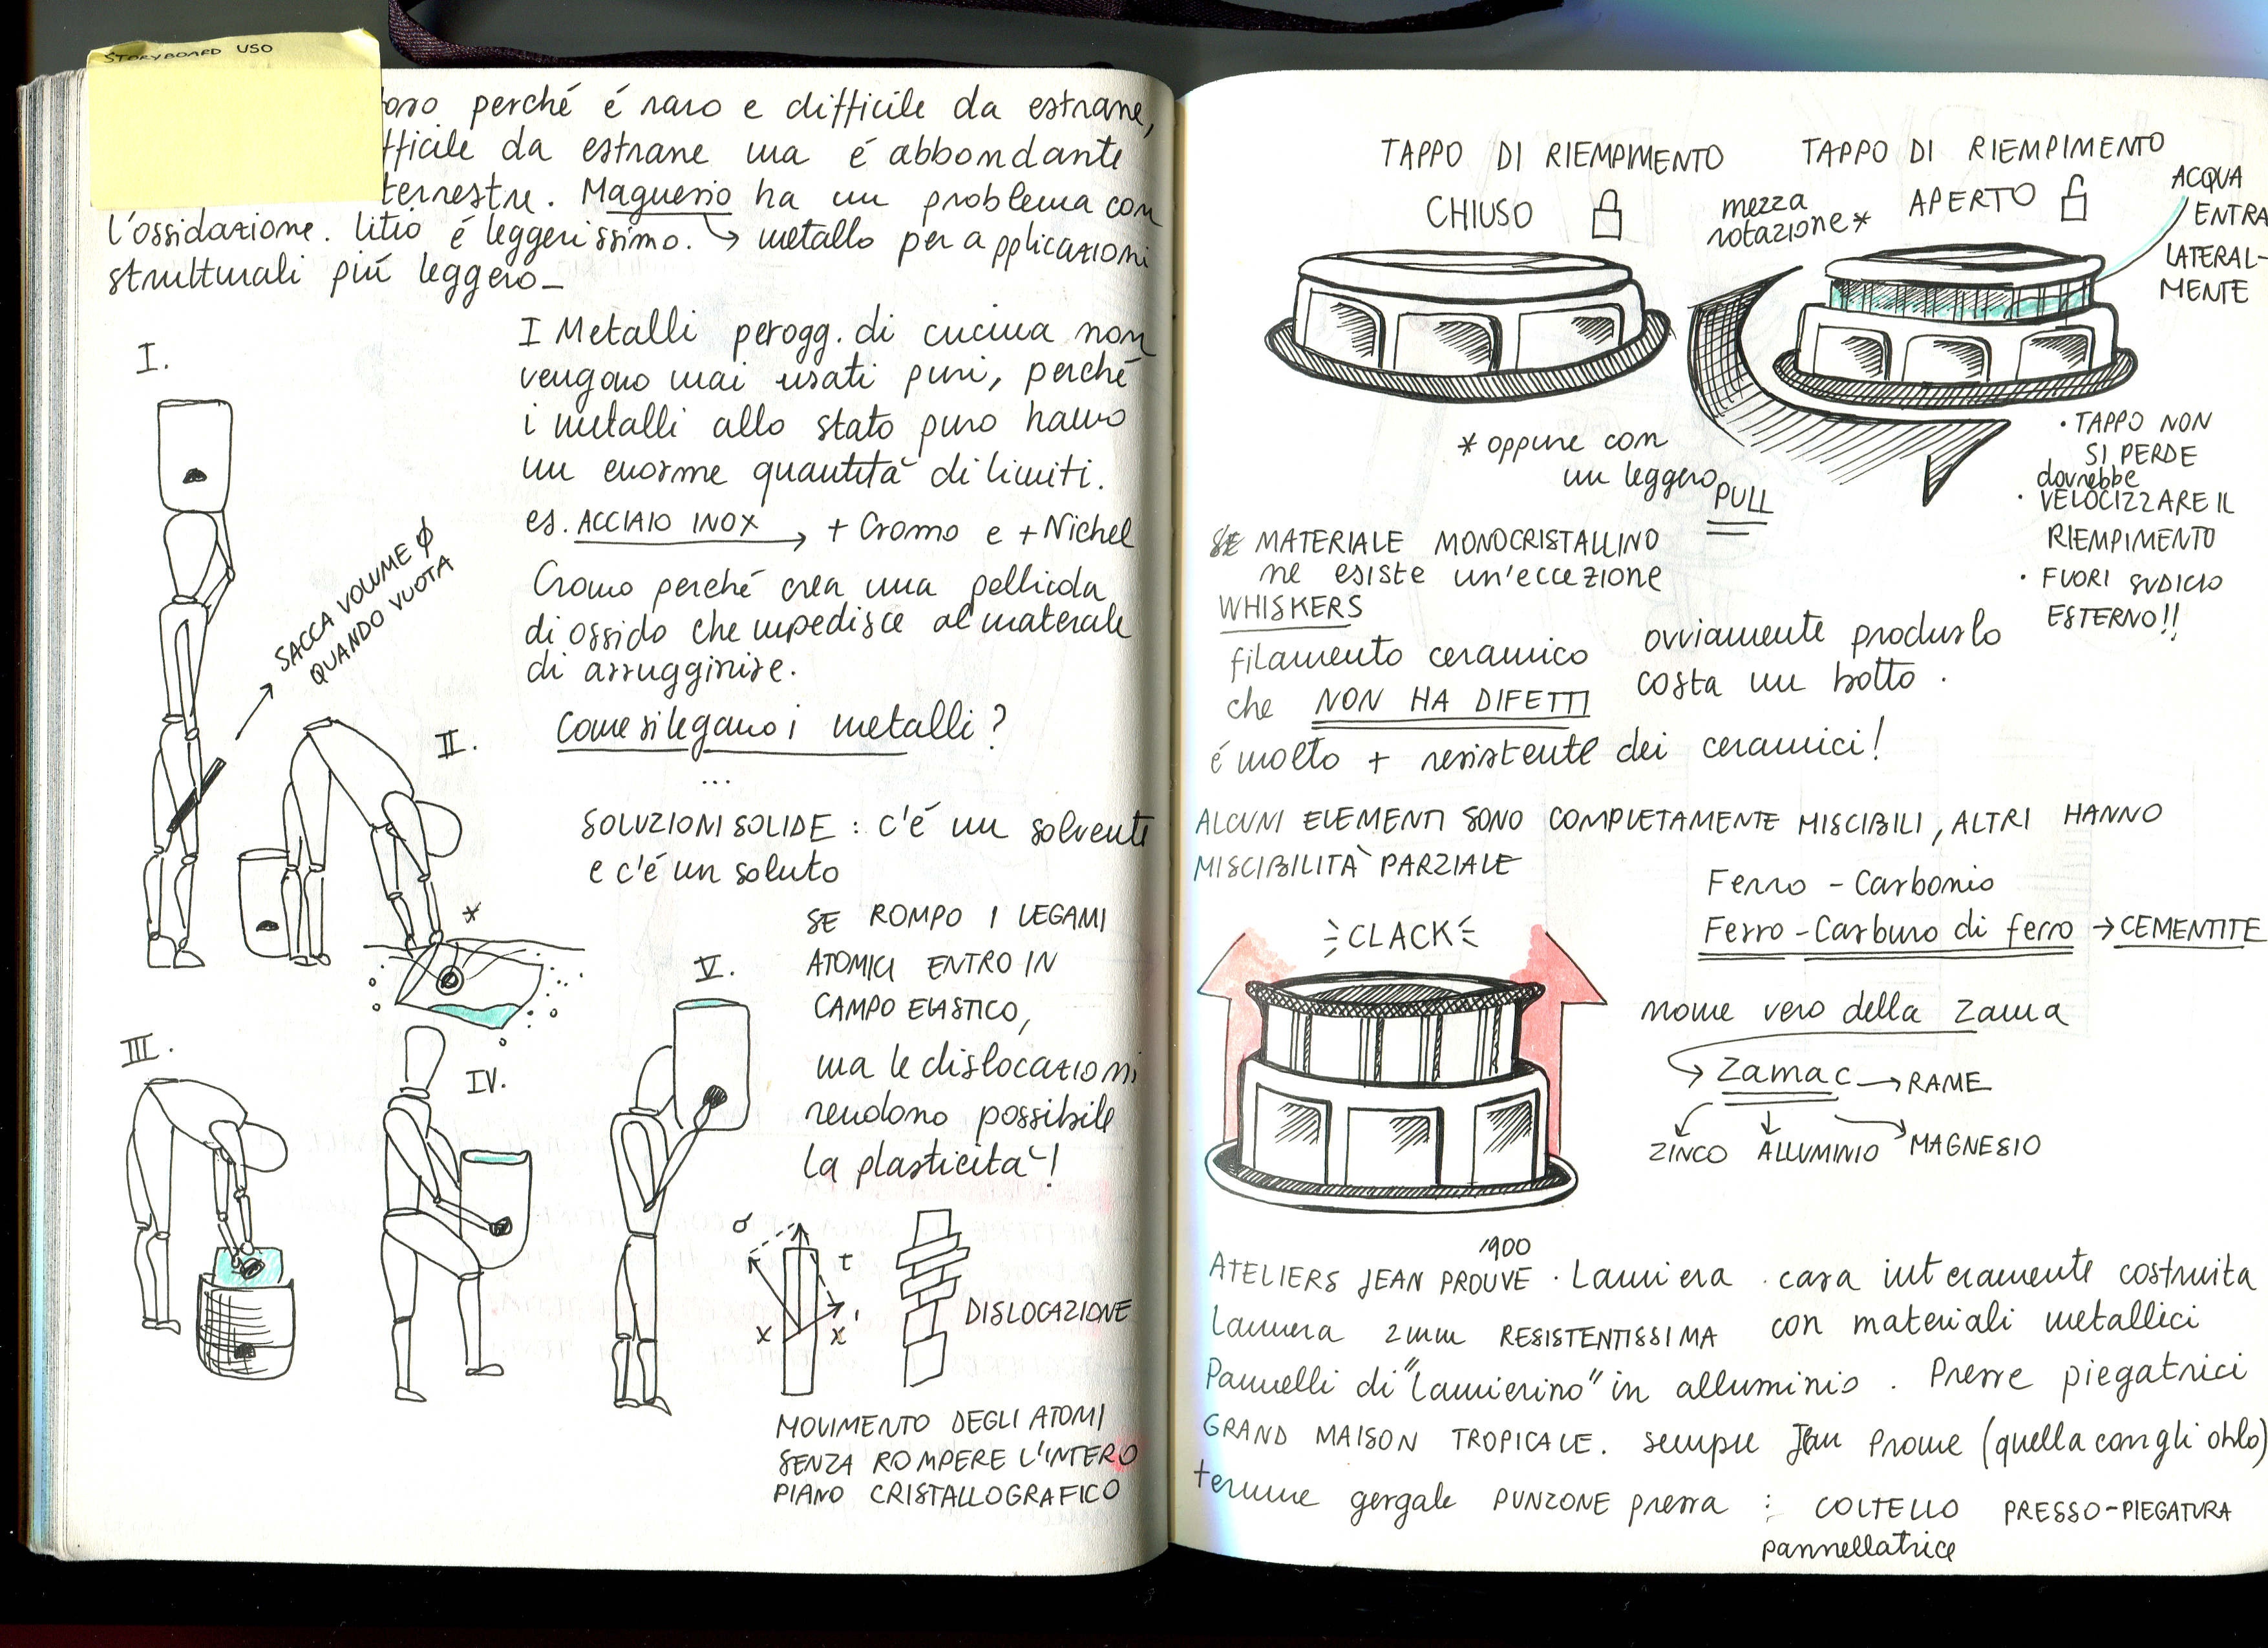 STORYBOARD USO
oro perché é raro e difficile da estrarre,
fficile da estrarre ma é abbondante
terrestre. Magnesio ha un problema con
l'ossidazione. litio é leggerissimo. → metallo per applicazioni
strutturali piú leggero_
I Metalli per ogg. di cucina non
vengono mai usati puri, perché
i metalli allo stato puro hanno
un enorme quantità di limiti.
es. ACCIAIO INOX → + Cromo e + Nichel
Cromo perché crea una pellicola
di ossido che impedisce al materiale
di arrugginire.
Come si legano i metalli?
...
SOLUZIONI SOLIDE : c'é un solvente
e c'é un soluto
SE ROMPO I LEGAMI
ATOMICI ENTRO IN
CAMPO ELASTICO,
ma le dislocazioni
rendono possibile
la plasticità!
I.
SACCA VOLUME Ø
QUANDO VUOTA
II.
*
III.
IV.
V.
σ
τ
x
x'
DISLOCAZIONE
MOVIMENTO DEGLI ATOMI
SENZA ROMPERE L'INTERO
PIANO CRISTALLOGRAFICO
TAPPO DI RIEMPIMENTO
CHIUSO
mezza
rotazione*
TAPPO DI RIEMPIMENTO
APERTO
ACQUA
ENTRA
LATERAL-
MENTE
* oppure con
un leggero
PULL
• TAPPO NON
SI PERDE
dovrebbe
• VELOCIZZARE IL
RIEMPIMENTO
• FUORI SUDICIO
ESTERNO!!
MATERIALE MONOCRISTALLINO
ne esiste un'eccezione
WHISKERS
filamento ceramico
che NON HA DIFETTI
é molto + resistente dei ceramici!
ovviamente produrlo
costa un botto.
ALCUNI ELEMENTI SONO COMPLETAMENTE MISCIBILI, ALTRI HANNO
MISCIBILITÀ PARZIALE
Ferro - Carbonio
Ferro - Carburo di ferro → CEMENTITE
CLACK
nome vero della Zama
→ Zamac → RAME
ZINCO ALLUMINIO MAGNESIO
1900
ATELIERS JEAN PROUVE . Lamiera . casa interamente costruita
Lamiera 2mm RESISTENTISSIMA con materiali metallici
Pannelli di "Lamierino" in alluminio . Presse piegatrici
GRAND MAISON TROPICALE. sempre Jean Prouve (quella con gli oblo)
termine gergale PUNZONE pressa : COLTELLO PRESSO-PIEGATURA
pannellatrice